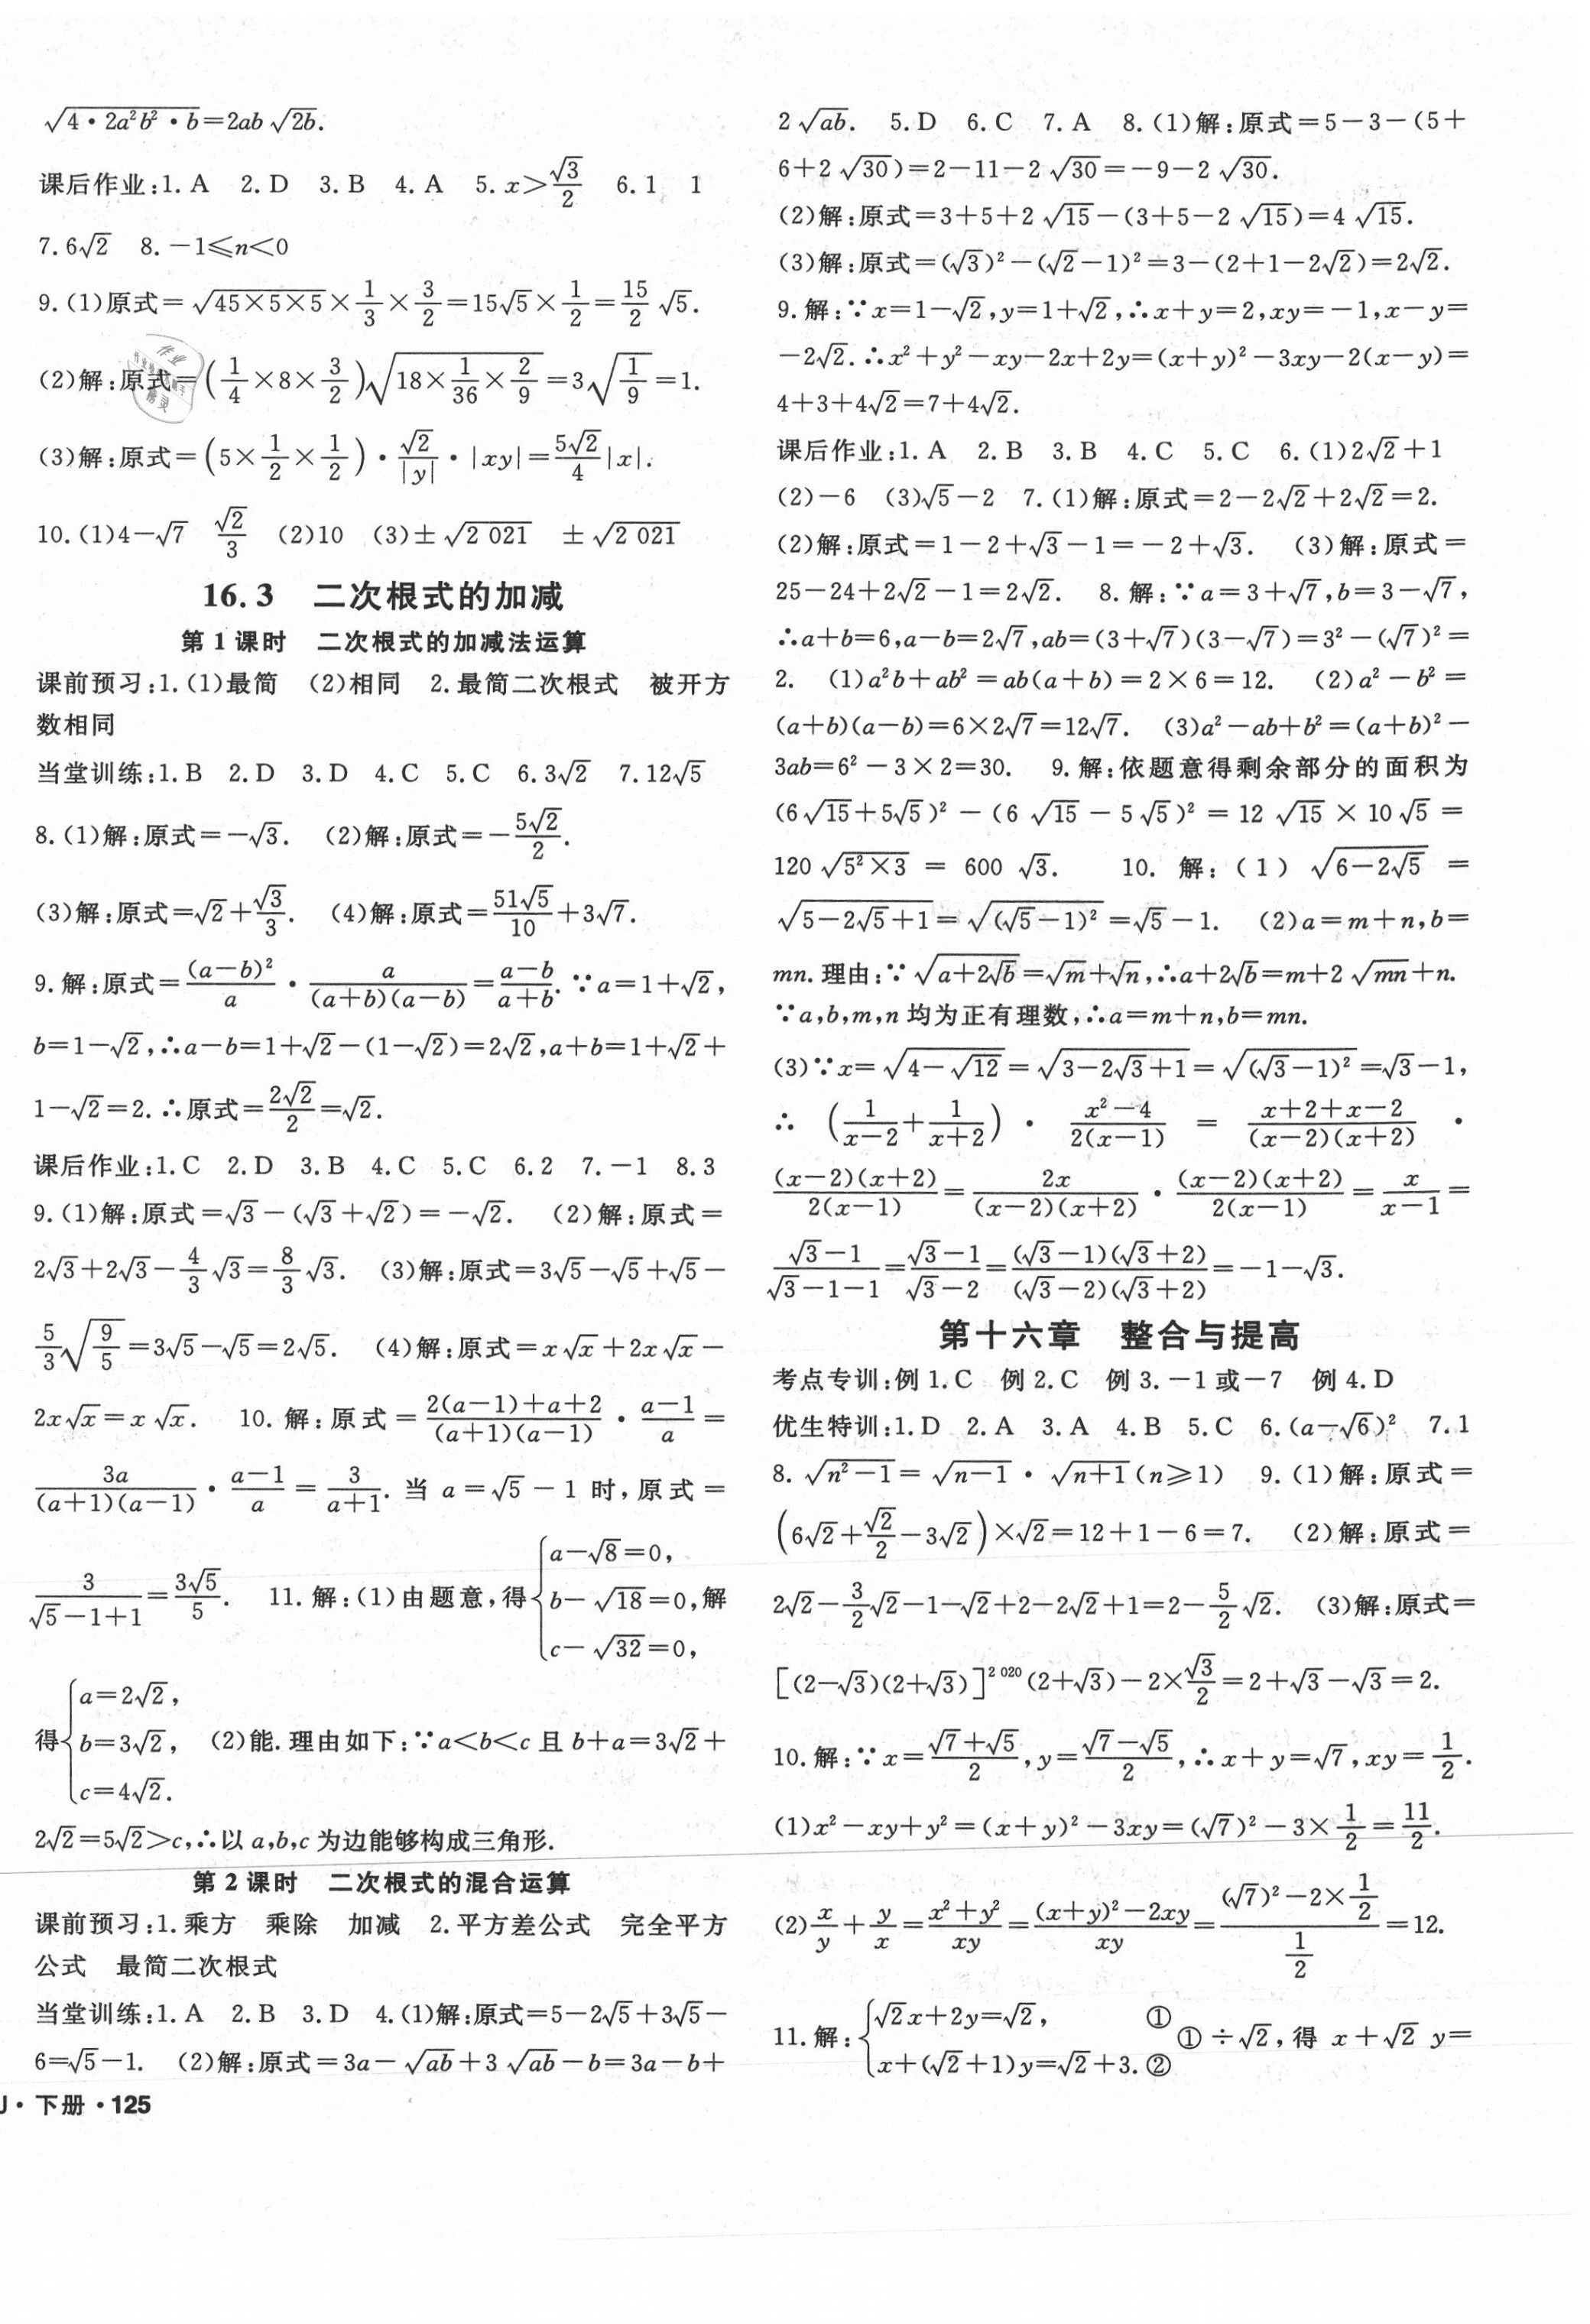 √(4·2a²b²·b)=2ab√(2b).
课后作业:1.A 2.D 3.B 4.A 5.x>√3/2 6.1 1
7.6√2 8.-1≤n<0
9.(1)原式=√(45×5×5)×1/3×3/2=15√5×1/2=15/2√5.
(2)解:原式=(1/4×8×3/2)√(18×1/36×2/9)=3√(1/9)=1.
(3)解:原式=(5×1/2×1/2)·√2/|y|·|xy|=5√2/4|x|.
10.(1)4-√7 √2/3 (2)10 (3)±√(2 021) ±√(2 021)
16.3 二次根式的加减
第1课时 二次根式的加减法运算
课前预习:1.(1)最简 (2)相同 2.最简二次根式 被开方
数相同
当堂训练:1.B 2.D 3.D 4.C 5.C 6.3√2 7.12√5
8.(1)解:原式=-√3. (2)解:原式=-5√2/2.
(3)解:原式=√2+√3/3. (4)解:原式=51√5/10+3√7.
9.解:原式=(a-b)²/a·a/((a+b)(a-b))=(a-b)/(a+b).∵a=1+√2,
b=1-√2,∴a-b=1+√2-(1-√2)=2√2,a+b=1+√2+
1-√2=2.∴原式=2√2/2=√2.
课后作业:1.C 2.D 3.B 4.C 5.C 6.2 7.-1 8.3
9.(1)解:原式=√3-(√3+√2)=-√2. (2)解:原式=
2√3+2√3-4/3√3=8/3√3. (3)解:原式=3√5-√5+√5-
5/3√(9/5)=3√5-√5=2√5. (4)解:原式=x√x+2x√x-
2x√x=x√x. 10.解:原式=(2(a-1)+a+2)/((a+1)(a-1))·(a-1)/a=
3a/((a+1)(a-1))·(a-1)/a=3/(a+1).当a=√5-1时,原式=
3/(√5-1+1)=3√5/5. 11.解:(1)由题意,得{a-√8=0, b-√18=0, c-√32=0,解
得{a=2√2, b=3√2, c=4√2. (2)能.理由如下:∵a<b<c且b+a=3√2+
2√2=5√2>c,∴以a,b,c为边能够构成三角形.
第2课时 二次根式的混合运算
课前预习:1.乘方 乘除 加减 2.平方差公式 完全平方
公式 最简二次根式
当堂训练:1.A 2.B 3.D 4.(1)解:原式=5-2√5+3√5-
6=√5-1. (2)解:原式=3a-√(ab)+3√(ab)-b=3a-b+
J·下册·125
2√(ab). 5.D 6.C 7.A 8.(1)解:原式=5-3-(5+
6+2√30)=2-11-2√30=-9-2√30.
(2)解:原式=3+5+2√15-(3+5-2√15)=4√15.
(3)解:原式=(√3)²-(√2-1)²=3-(2+1-2√2)=2√2.
9.解:∵x=1-√2,y=1+√2,∴x+y=2,xy=-1,x-y=
-2√2.∴x²+y²-xy-2x+2y=(x+y)²-3xy-2(x-y)=
4+3+4√2=7+4√2.
课后作业:1.A 2.B 3.B 4.C 5.C 6.(1)2√2+1
(2)-6 (3)√5-2 7.(1)解:原式=2-2√2+2√2=2.
(2)解:原式=1-2+√3-1=-2+√3. (3)解:原式=
25-24+2√2-1=2√2. 8.解:∵a=3+√7,b=3-√7,
∴a+b=6,a-b=2√7,ab=(3+√7)(3-√7)=3²-(√7)²=
2. (1)a²b+ab²=ab(a+b)=2×6=12. (2)a²-b²=
(a+b)(a-b)=6×2√7=12√7. (3)a²-ab+b²=(a+b)²-
3ab=6²-3×2=30. 9.解:依题意得剩余部分的面积为
(6√15+5√5)²-(6√15-5√5)²=12√15×10√5=
120√(5²×3)=600√3. 10.解:(1)√(6-2√5)=
√(5-2√5+1)=√((√5-1)²)=√5-1. (2)a=m+n,b=
mn.理由:∵√(a+2√b)=√m+√n,∴a+2√b=m+2√(mn)+n.
∵a,b,m,n均为正有理数,∴a=m+n,b=mn.
(3)∵x=√(4-√12)=√(3-2√3+1)=√((√3-1)²)=√3-1,
∴(1/(x-2)+1/(x+2))·(x²-4)/(2(x-1))=(x+2+x-2)/((x-2)(x+2))·
(x-2)(x+2)/(2(x-1))=2x/((x-2)(x+2))·(x-2)(x+2)/(2(x-1))=x/(x-1)=
(√3-1)/(√3-1-1)=(√3-1)/(√3-2)=(√3-1)(√3+2)/((√3-2)(√3+2))=-1-√3.
第十六章 整合与提高
考点专训:例1.C 例2.C 例3.-1或-7 例4.D
优生特训:1.D 2.A 3.A 4.B 5.C 6.(a-√6)² 7.1
8.√(n²-1)=√(n-1)·√(n+1)(n≥1) 9.(1)解:原式=
(6√2+√2/2-3√2)×√2=12+1-6=7. (2)解:原式=
2√2-3/2√2-1-√2+2-2√2+1=2-5/2√2. (3)解:原式=
[(2-√3)(2+√3)]^2 020(2+√3)-2×√3/2=2+√3-√3=2.
10.解:∵x=(√7+√5)/2,y=(√7-√5)/2,∴x+y=√7,xy=1/2.
(1)x²-xy+y²=(x+y)²-3xy=(√7)²-3×1/2=11/2.
(2)x/y+y/x=(x²+y²)/xy=((x+y)²-2xy)/xy=((√7)²-2×1/2)/(1/2)=12.
11.解:{√2x+2y=√2, ① x+(√2+1)y=√2+3.② ①÷√2,得x+√2y=